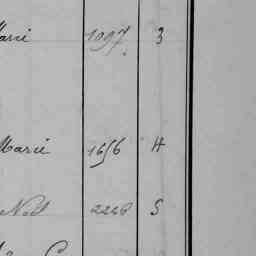 Marie 1097 3
Marie 1656 H
Noël 2248 S